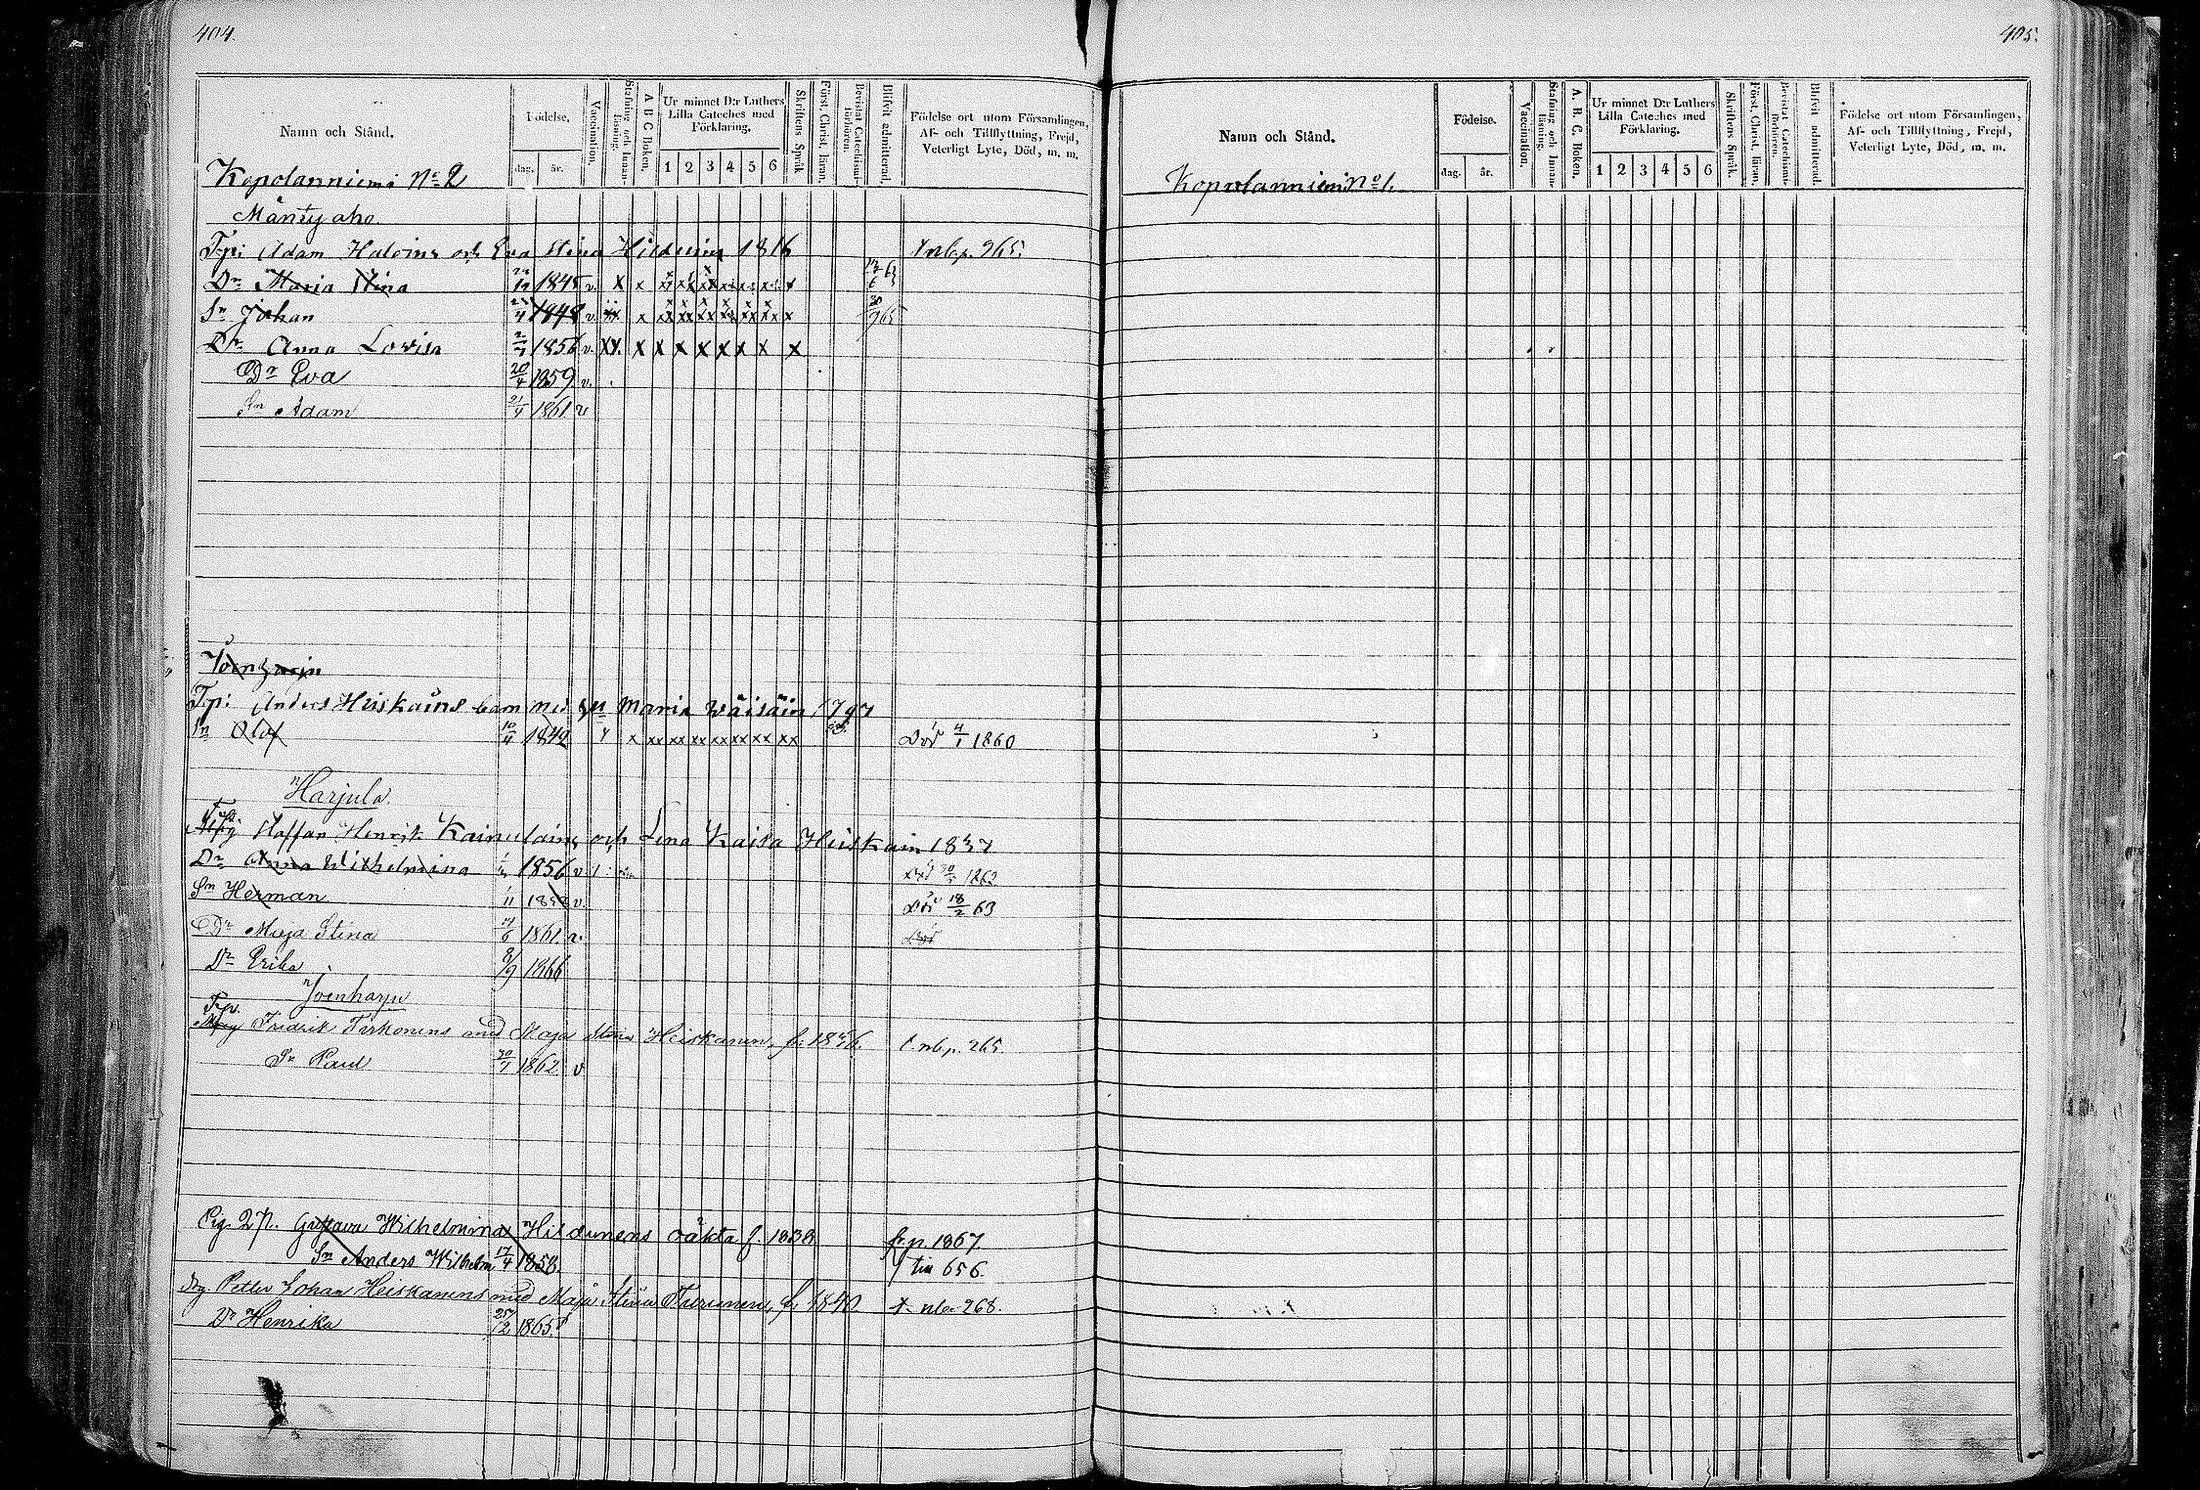 404.
Namn och Stånd.
Födelse.
dag. år.
Vaccination.
Stafning och Innanläsning.
A B C Boken.
Ur minnet D:r Luthers Lilla Cateches med Förklaring.
1 2 3 4 5 6
Skriftens Språk
Först. Christ. läran.
Bevistat Catechismiförhören.
Blifvit admitterad.
Födelse ort utom Församlingen,
Af- och Tillflyttning, Frejd,
Veterligt Lyte, Död, m. m.
Kopolanniemi No 2
Mäntyaho.
Tp: Adam Halvins och Eva Stina Hilduin 1816
Dr Maria Stina 1845 v. x x
Sn Johan 24/4 1848 v. x
Dr Anna Lovisa 1856 v. xx. x x x x x x x x
Dr Eva 20/4 1859 v.
Sn Adam 21/4 1861 v
Tp: Anders Heiskains barn med Maria Wäisäin 1797
Sn Olof 10/4 1842 x xx xx xx xx xx xx xx Död 4/1 1860
Harjula.
Staffan Henrik Kainulains och Lena Kaisa Heiskain 1837
Dr Anna Wilhelmina 1856 v. 1862
Sn Herman 1/11 v. Död 18/2 63
Dr Maja Stina 1861 v. Död
Dr Erika 8/9 1866
Joenharju
Fredrik Tirkonens med Maja Stina Heiskanen, f. 1836. nb p. 265
Sn Paul 1862 v
Pig. Gustava Wilhelmina Hildunens oäkta f. 1838 fr. p. 1867.
Sn Anders Wilhelm 17/4 1858. till 656.
Petter Johan Heiskanens med Maja Stina Turunen, f. 1840 268.
Dr Henrika 25/12 1865
405.
Namn och Stånd.
Födelse.
dag. år.
Vaccination.
Stafning och Innanläsning.
A. B. C. Boken.
Ur minnet D:r Luthers Lilla Cateches med Förklaring.
1 2 3 4 5 6
Skriftens Språk.
Först. Christ. läran.
Bevistat Catechismiförhören.
Blifvit admitterad.
Födelse ort utom Församlingen,
Af- och Tillflyttning, Frejd,
Veterligt Lyte, Död, m. m.
Kopolanniemi No 1.